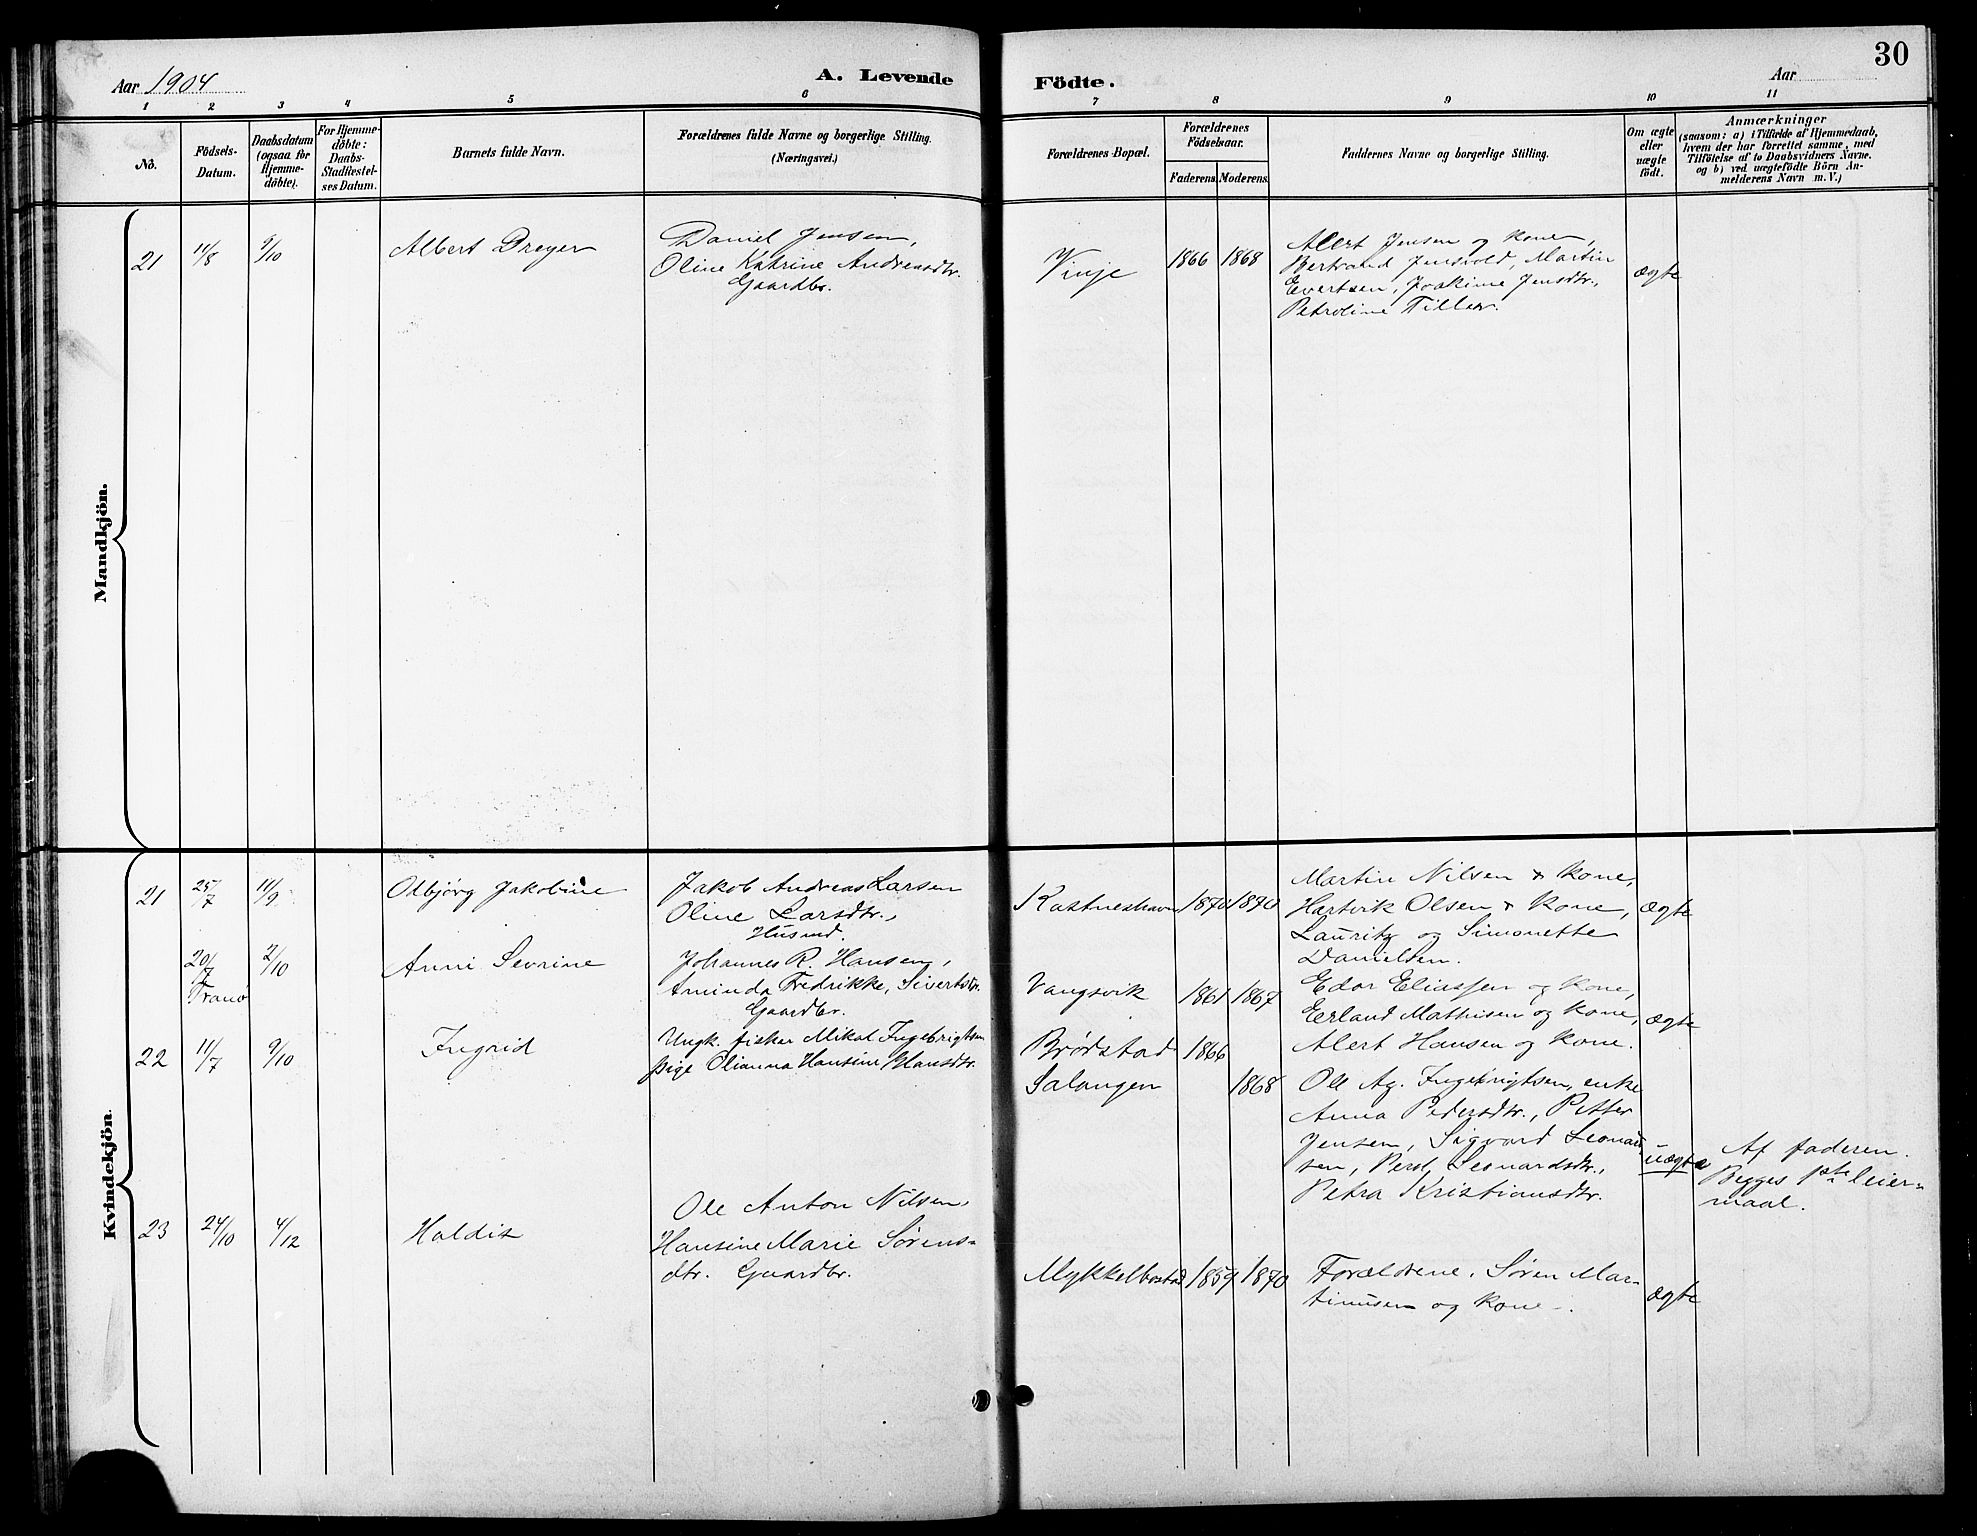 30
Aar 1904
A. Levende
Födte.
Aar
1 2 3 4 5 6 7 8 9 10 11
No.
Födsels-
Datum.
Daabsdatum
(ogsaa for
Hjemme-
döbte).
For Hjemme-
döbte:
Daabs-
Stadfestel-
ses Datum.
Barnets fulde Navn.
Forældrenes fulde Navne og borgerlige Stilling.
(Næringsvei.)
Forældrenes Bopæl.
Forældrenes
Födselsaar.
Faderens. Moderens.
Faddernes Navne og borgerlige Stilling.
Om ægte
eller
uægte
födt.
Anmærkninger
(saasom: a) i Tilfælde af Hjemmedaab,
hvem der har forrettet samme, med
Tilföielse af to Daabsvidners Navne.
og b) ved uægtefödte Börn An-
melderens Navn m. V.)
Mandkjön.
21 11/8 9/10 Albert Dreyer
Daniel Jensen,
Oline Katrine Andreasdtr.
Gaardbr.
Vinje 1866 1868
Alert Jensen og kone,
Bertrand Jensvold, Martin
Evertsen, Joakime Jensdtr.,
Petroline Tiller.
ægte
Kvindekjön.
21 25/7 11/9 Olbjörg Jakobine
Jakob Andreas Larsen
Oline Larsdtr.,
Husmd.
Kastneshavn 1870 1870
Martin Nilsen & kone,
Hartvik Olsen & kone,
Lauritz og Simonette
Danielsen.
ægte
20/7 2/10 Anni Sevrine
Tranö
Johannes R. Hansen,
Aminda Fredrikke, Sivertsdtr.
Gaardbr.
Vangsvik 1861 1867
Edor Eliassen og kone,
Erland Mathisen og kone,
Alert Hansen og kone.
ægte
22 11/7 9/10 Ingrid
Ungk. fisker Mikal Ingebrigtsen
pige Olianna Hansine Hansdtr.
Brödstad 1866
Salangen 1868
Ole Ag. Ingebrigtsen, enke
Anna Pedersdtr., Petter
Jensen, Sigvard Leonard-
sen, Leonardsdtr.,
Petra Kristiansdtr.
uægte
Af faderen.
Begges 1ste leier-
maal.
23 24/10 4/12 Haldis
Ole Anton Nilsen,
Hansine Marie Sörens-
dtr. Gaardbr.
Mykkelbostad 1859 1870
Forældrene, Sören Mar-
tinusen og kone.
ægte